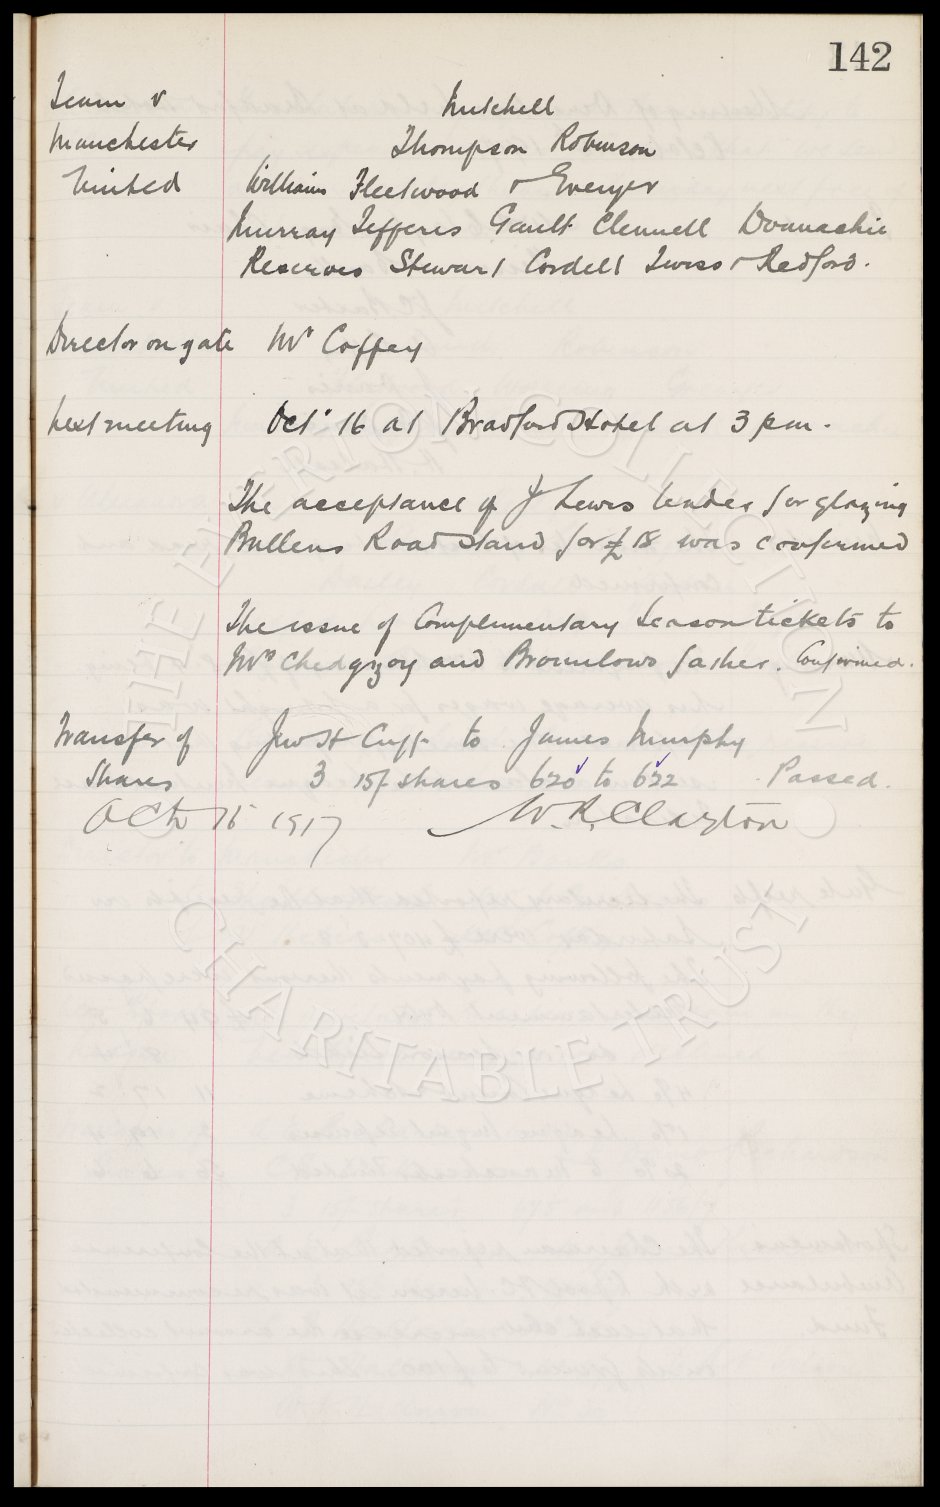 142
Team v Mitchell
Manchester Thompson Robinson
United Williams Fleetwood & Grenyer
Murray Jefferis Gault Clennell Donnachie
Reserves Stewart Cordell Twiss & Redford.
Director on gate Mr Coffey
Next meeting Octr 16 at Bradford Hotel at 3 pm.
The acceptance of J Lewis tender for glazing
Bullens Road stand for £18 was confirmed
The issue of Complimentary Season tickets to
Mrs Chedgzoy and Brownlows father. Confirmed.
Transfer of Jno H Cuff to James Murphy
Shares 3 15/- shares 620 to 622 Passed.
Oct 1917 W. R. Clayton
THE EVERTON COLLECTION
CHARITABLE TRUST